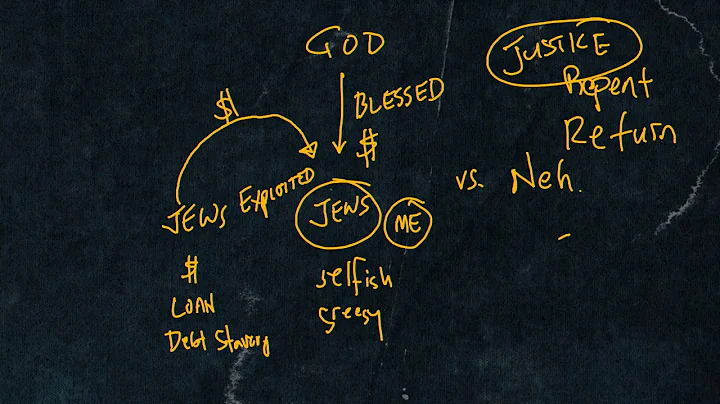 GOD
JUSTICE
Repent
Return
$
BLESSED
$
JEWS EXPLOITED
JEWS
ME
vs. Neh.
$
LOAN
Debt Slavery
selfish
greedy